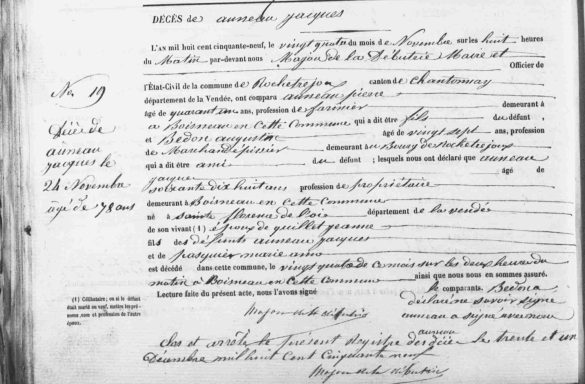 DÉCÈS de auneau jacques
L'AN mil huit cent cinquante-neuf, le vingt quatre du mois de Novembre sur les huit heures
du Matin par-devant nous Majou de la Débuterie Maire et Officier de
l'État-Civil de la commune de Rochetrejoux canton de Chantonnay
département de la Vendée, ont comparu auneau pierre
âgé de quarante ans, profession de farinier demeurant à
a Boisneau en Cette Commune qui a dit être fils du défunt,
et Bedon augustin âgé de vingt sept ans, profession
de Marchand épicier demeurant au Bourg de Rochetrejoux
qui a dit être ami du défunt; lesquels nous ont déclaré que auneau
jacques âgé de
soixante dix huit ans profession de propriétaire
demeurant à Boisneau en cette Commune
né à sainte florence de loie département de la vendée
de son vivant (1) époux de guillet jeanne
fils des défunts auneau jacques
et de pasquier marie anne
est décédé dans cette commune, le vingt quatre de ce mois sur les deux heures du
matin à Boisneau en cette Commune ainsi que nous nous en sommes assuré.
Lecture faite du présent acte, nous l'avons signé le comparants. Bedon a
déclaré ne savoir signé
auneau a signé avec nous
Majou de la débuterie
auneau
Clos et arrêté le présent registre des décès le trente et un
Décembre mil huit Cent Cinquante neuf
Majou de la débuterie
No 19
Décès de
auneau
jacques le
24 Novembre
agé de 78 ans
(1) Célibataire; ou si le défunt
était marié ou veuf, mettre les prénoms, nom et profession de l'autre
époux.